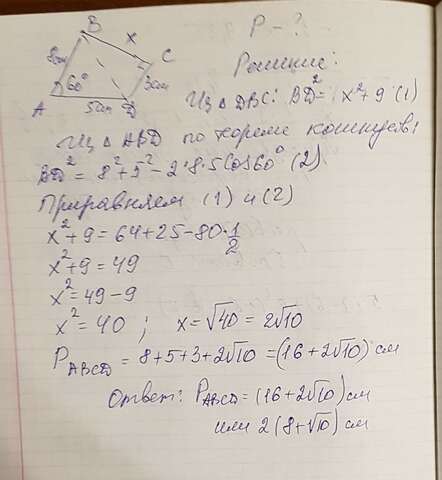 B
x
C
P - ?
8см
60°
3см
A
5см
D
Решение:
Из △ DBC: BD² = x² + 9 (1)
Из △ ABD по теореме косинусов:
BD² = 8² + 5² - 2·8·5 cos60° (2)
Приравняем (1) и (2)
x² + 9 = 64 + 25 - 80·1/2
x² + 9 = 49
x² = 49 - 9
x² = 40 ; x = √40 = 2√10
P ABCD = 8 + 5 + 3 + 2√10 = (16 + 2√10) см
Ответ: P ABCD = (16 + 2√10) см
или 2 (8 + √10) см